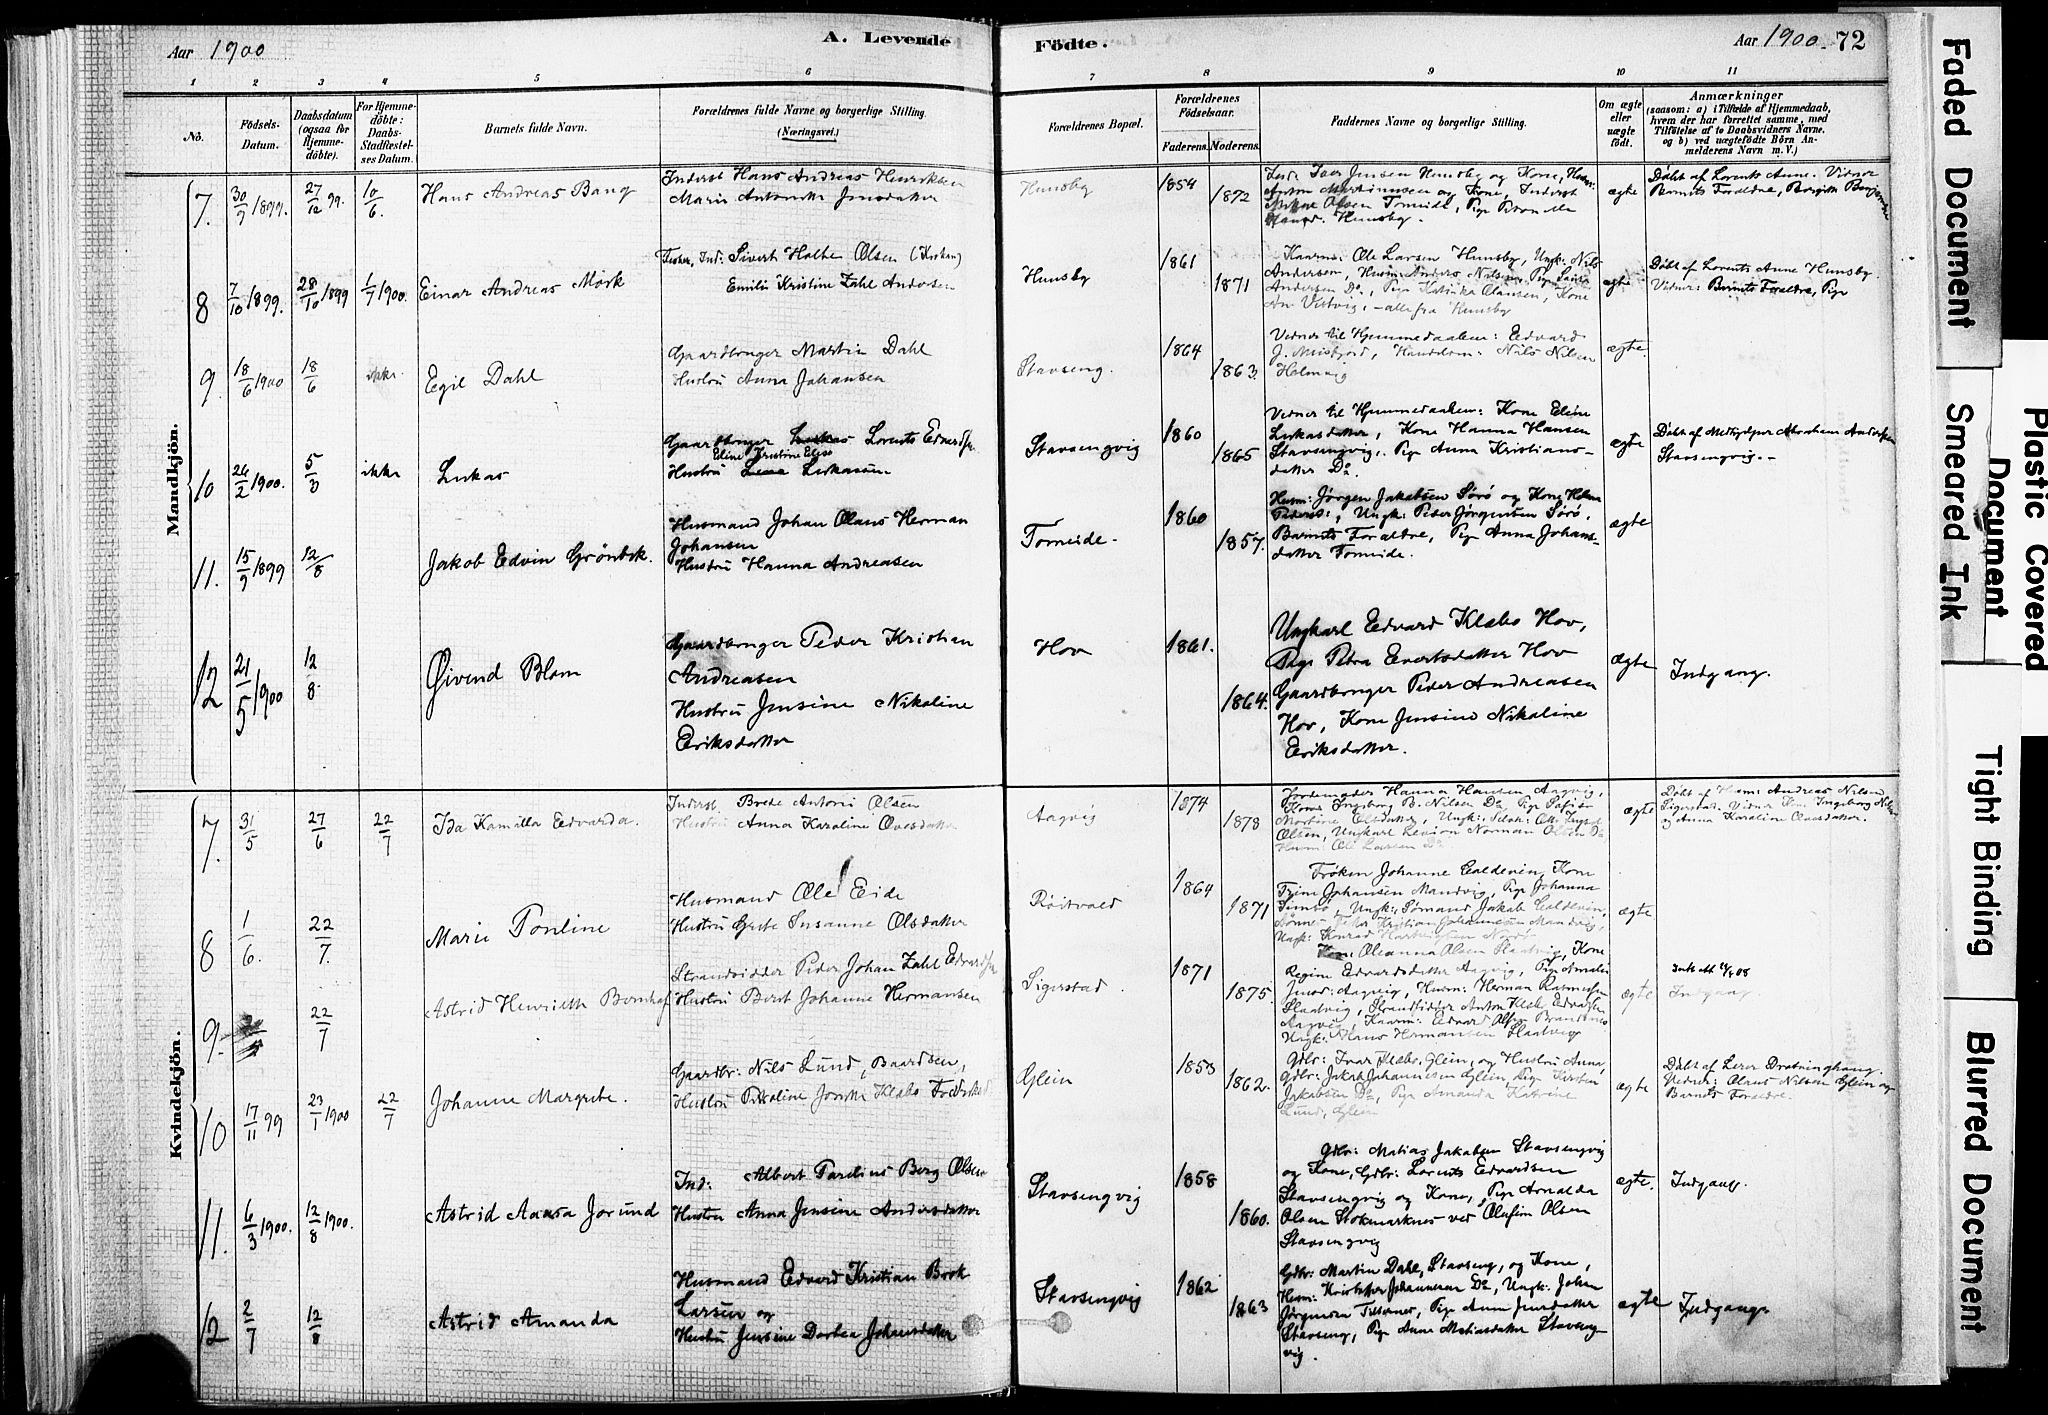 Aar 1900
A. Levende
Födte.
Aar 1900. 72
1 2 3 4 5 6 7 8 9 10 11
No.
Födsels-
Datum.
Daabsdatum
(ogsaa for
Hjemme-
döbte).
For Hjemme-
döbte:
Daabs-
Stadfæstel-
ses Datum.
Barnets fulde Navn.
Forældrenes fulde Navne og borgerlige Stilling.
(Næringsvei.)
Forældrenes Bopæl.
Forældrenes
Födselsaar.
Faderens. Moderens.
Faddernes Navne og borgerlige Stilling.
Om ægte
eller
uægte
födt.
Anmærkninger
(saasom: a) i Tilfælde af Hjemmedaab,
hvem der har forrettet samme, med
Tilföielse af to Daabsvidners Navne,
og b) ved uægtefödte Börn An-
melderens Navn m. V.)
Mandkjön.
7. 30/9 1899. 27/12 99. 10/6. Hans Andreas Bang
Inderst Hans Andreas Henriksen
Marie Antonette Jensdatter
Hunsby 1854 1872
Ind. Iver Jensen Hunsby og Kone,
Anton Martinussen og Kone, Inderst
Olsen Tomeide, Pige Petronelle
Hunsby.
ægte
Døbt af Lorents Anne. Vidner
Barnets Forældre, Birgith
8 7/10 1899. 28/10 1899 1/7 1900. Einar Andreas Mörk
Fisker, Ind: Sivert Holthe Olsen
Emilie Kristine Zahl Andersen
Hunsby 1861 1871
Kaarm: Ole Larsen Hunsby, Ungk: Nils
Andersen, Husm: Anders Nilsen, Pige
Andersen Do, Pige Katrika Olausen, Kone
alle fra Hunsby
ægte
Døbt af Lorents Anne Hunsby.
Vidner: Barnets Forældre, Pige
9. 18/6 1900 18/6 ikke. Egil Dahl
Gaardbruger Martin Dahl
Hustru Anna Johansen
Stavseng. 1864 1863.
Vidner til Hjemmedaaben: Edvard
J. Misfjord, Handelsm: Nils Nilsen
Holmvig
ægte.
10 26/2 1900. 5/3 ikke Lukas
Gaardbruger Lorents Edvardsen
Eline Kristine Elise
Hustru Lukassen
Stavsengvig 1860 1865
Vidner til Hjemmedaaben: Kone Eline
Lukasdatter, Kone Hanna Hansen
Stavsengvig, Pige Anna Kristians-
datter Do.
ægte
Døbt af Abraham Andersen
Stavsengvig.
11. 15/9 1899 12/8 Jakob Edvin Grönbek.
Husmand Johan Olaus Herman
Johansen
Hustru Hanna Andreasen
Tomeide. 1860 1857.
Husm: Jørgen Jakobsen Sörö og Kone
Ungk: Peder Jörgensen Sörö,
Barnets Forældre, Pige Anna Johans-
datter Tomeide.
ægte
12 21/5 1900 12/8. Øivend Blom
Gaardbruger Peder Kristian
Andreasen
Hustru Jensine Nikoline
Eriksdatter
Hov 1861. 1864.
Ungkarl Edvard Klæbo Hov,
Pige Petra Evertsdatter Hov
Gaardbruger Peder Andreasen
Hov, Kone Jensine Nikoline
Eriksdatter.
ægte Indgang.
Kvindekjön.
7. 31/5 27/6 22/7 Ida Kamilla Edvarda.
Inderst Brede Antoni Olsen
Hustru Anna Karoline Ovesdatter
Aagvig 1874 1878
Jordemoder Hanna Hansen Aagvig,
Kone Ingeborg B. Nilsen Do, Pige
Martine Olsdatter, Ungk:
Olsen, Ungkarl Norman Olsen Do
Husm: Ole Larsen Do
ægte
Døbt af Husm: Andreas Nilsen
Sigerstad. Vidner Ingeborg
og Anna Karoline Ovesdatter.
8 1/6. 22/7. Marie Pouline
Husmand Ole Eide
Hustru Grete Susanne Olsdatter
Röitvold 1864 1871
Fröken Johanne Calderin, Kone
Trine Johansen Mandvig, Pige Johanna
Ungk: Sömand Jakob Calderin,
Kristian Johannesen Mandvig,
Ungk: Konrad
ægte
9. 22/7 Astrid Henriette Bernhof
Strandsidder Peder Johan Zahl Edvardsen
Hustru Berit Johanne Hermansen
Sigerstad. 1871 1875.
Kone: Oleanna Olsen Slaatvig, Kone
Regine Edvardsdatter Aagvig, Pige Amalie
Aagvig, Husm: Herman Rasmussen
Slaatvig, Strandsidder Anton Klæbo Edvardsen
Aagvig, Kaarm: Edvard Olsen
Ungk: Hans Hermansen Slaatvig
ægte
Indgang
10 17/11 99 23/1 1900 22/7 Johanne Margrete.
Gaardbr: Nils Lund, Baardsen,
Hustru
Glein 1853 1862.
Gdbr: Ivar Klæbo, Glein, og Hustru Anna,
Gdbr: Jakob Johannesen Glein, Pige Kirsten
Jakobsen Do, Pige Amanda Katrine
Lund, Glein
ægte
Døbt af Lærer Drotninghaug.
Vidner: Olaus Nilsen Glein og
Barnets Forældre.
11. 6/3 1900. 12/8 1900. Astrid Aansa Jorund
Ind: Albert Pardius Berg Olsen
Hustru Anna Jensine Andersdatter
Stavsengvig 1858 1860.
Gdbr: Matias Jakobsen Stavsengvig
og Kone, Gdbr: Lorents Edvardsen
Stavsengvig og Kone, Pige Arnalda
Olsen Stokmarknes ved Olufine Olsen
Stavsengvig
ægte. Indgang.
12 2/7 12/8 Astrid Amanda
Husmand Edvard Kristian Brok
Larsen og
Hustru Jensine Dorthea Johansdatter
Stavsengvig 1862 1863
Gdbr: Martin Dahl, Stavseng, og Kone,
Husm: Kristoffer Johannesen Do, Ungk: Johan
Jörgensen Pige Anne Jensdatter
Stavseng, Pige Anne Matiasdatter Stavseng-
vig.
ægte Indgang
Faded Document
Smeared Ink
Plastic Covered
Document
Tight Binding
Blurred Document